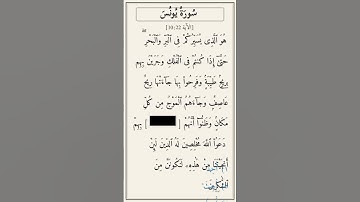 سُورَةُ يُونُسَ
[الآية 10:22]
هُوَ ٱلَّذِى يُسَيِّرُكُمْ فِى ٱلْبَرِّ وَٱلْبَحْرِ ۖ
حَتَّىٰٓ إِذَا كُنتُمْ فِى ٱلْفُلْكِ وَجَرَيْنَ بِهِم
بِرِيحٍ طَيِّبَةٍ وَفَرِحُوا۟ بِهَا جَآءَتْهَا رِيحٌ
عَاصِفٌ وَجَآءَهُمُ ٱلْمَوْجُ مِن كُلِّ
مَكَانٍ وَظَنُّوٓا۟ أَنَّهُمْ [ ] بِهِمْ
دَعَوُا۟ ٱللَّهَ مُخْلِصِينَ لَهُ ٱلدِّينَ لَئِنْ
أَنجَيْتَنَا مِنْ هَٰذِهِۦ لَنَكُونَنَّ مِنَ
ٱلشَّٰكِرِينَ